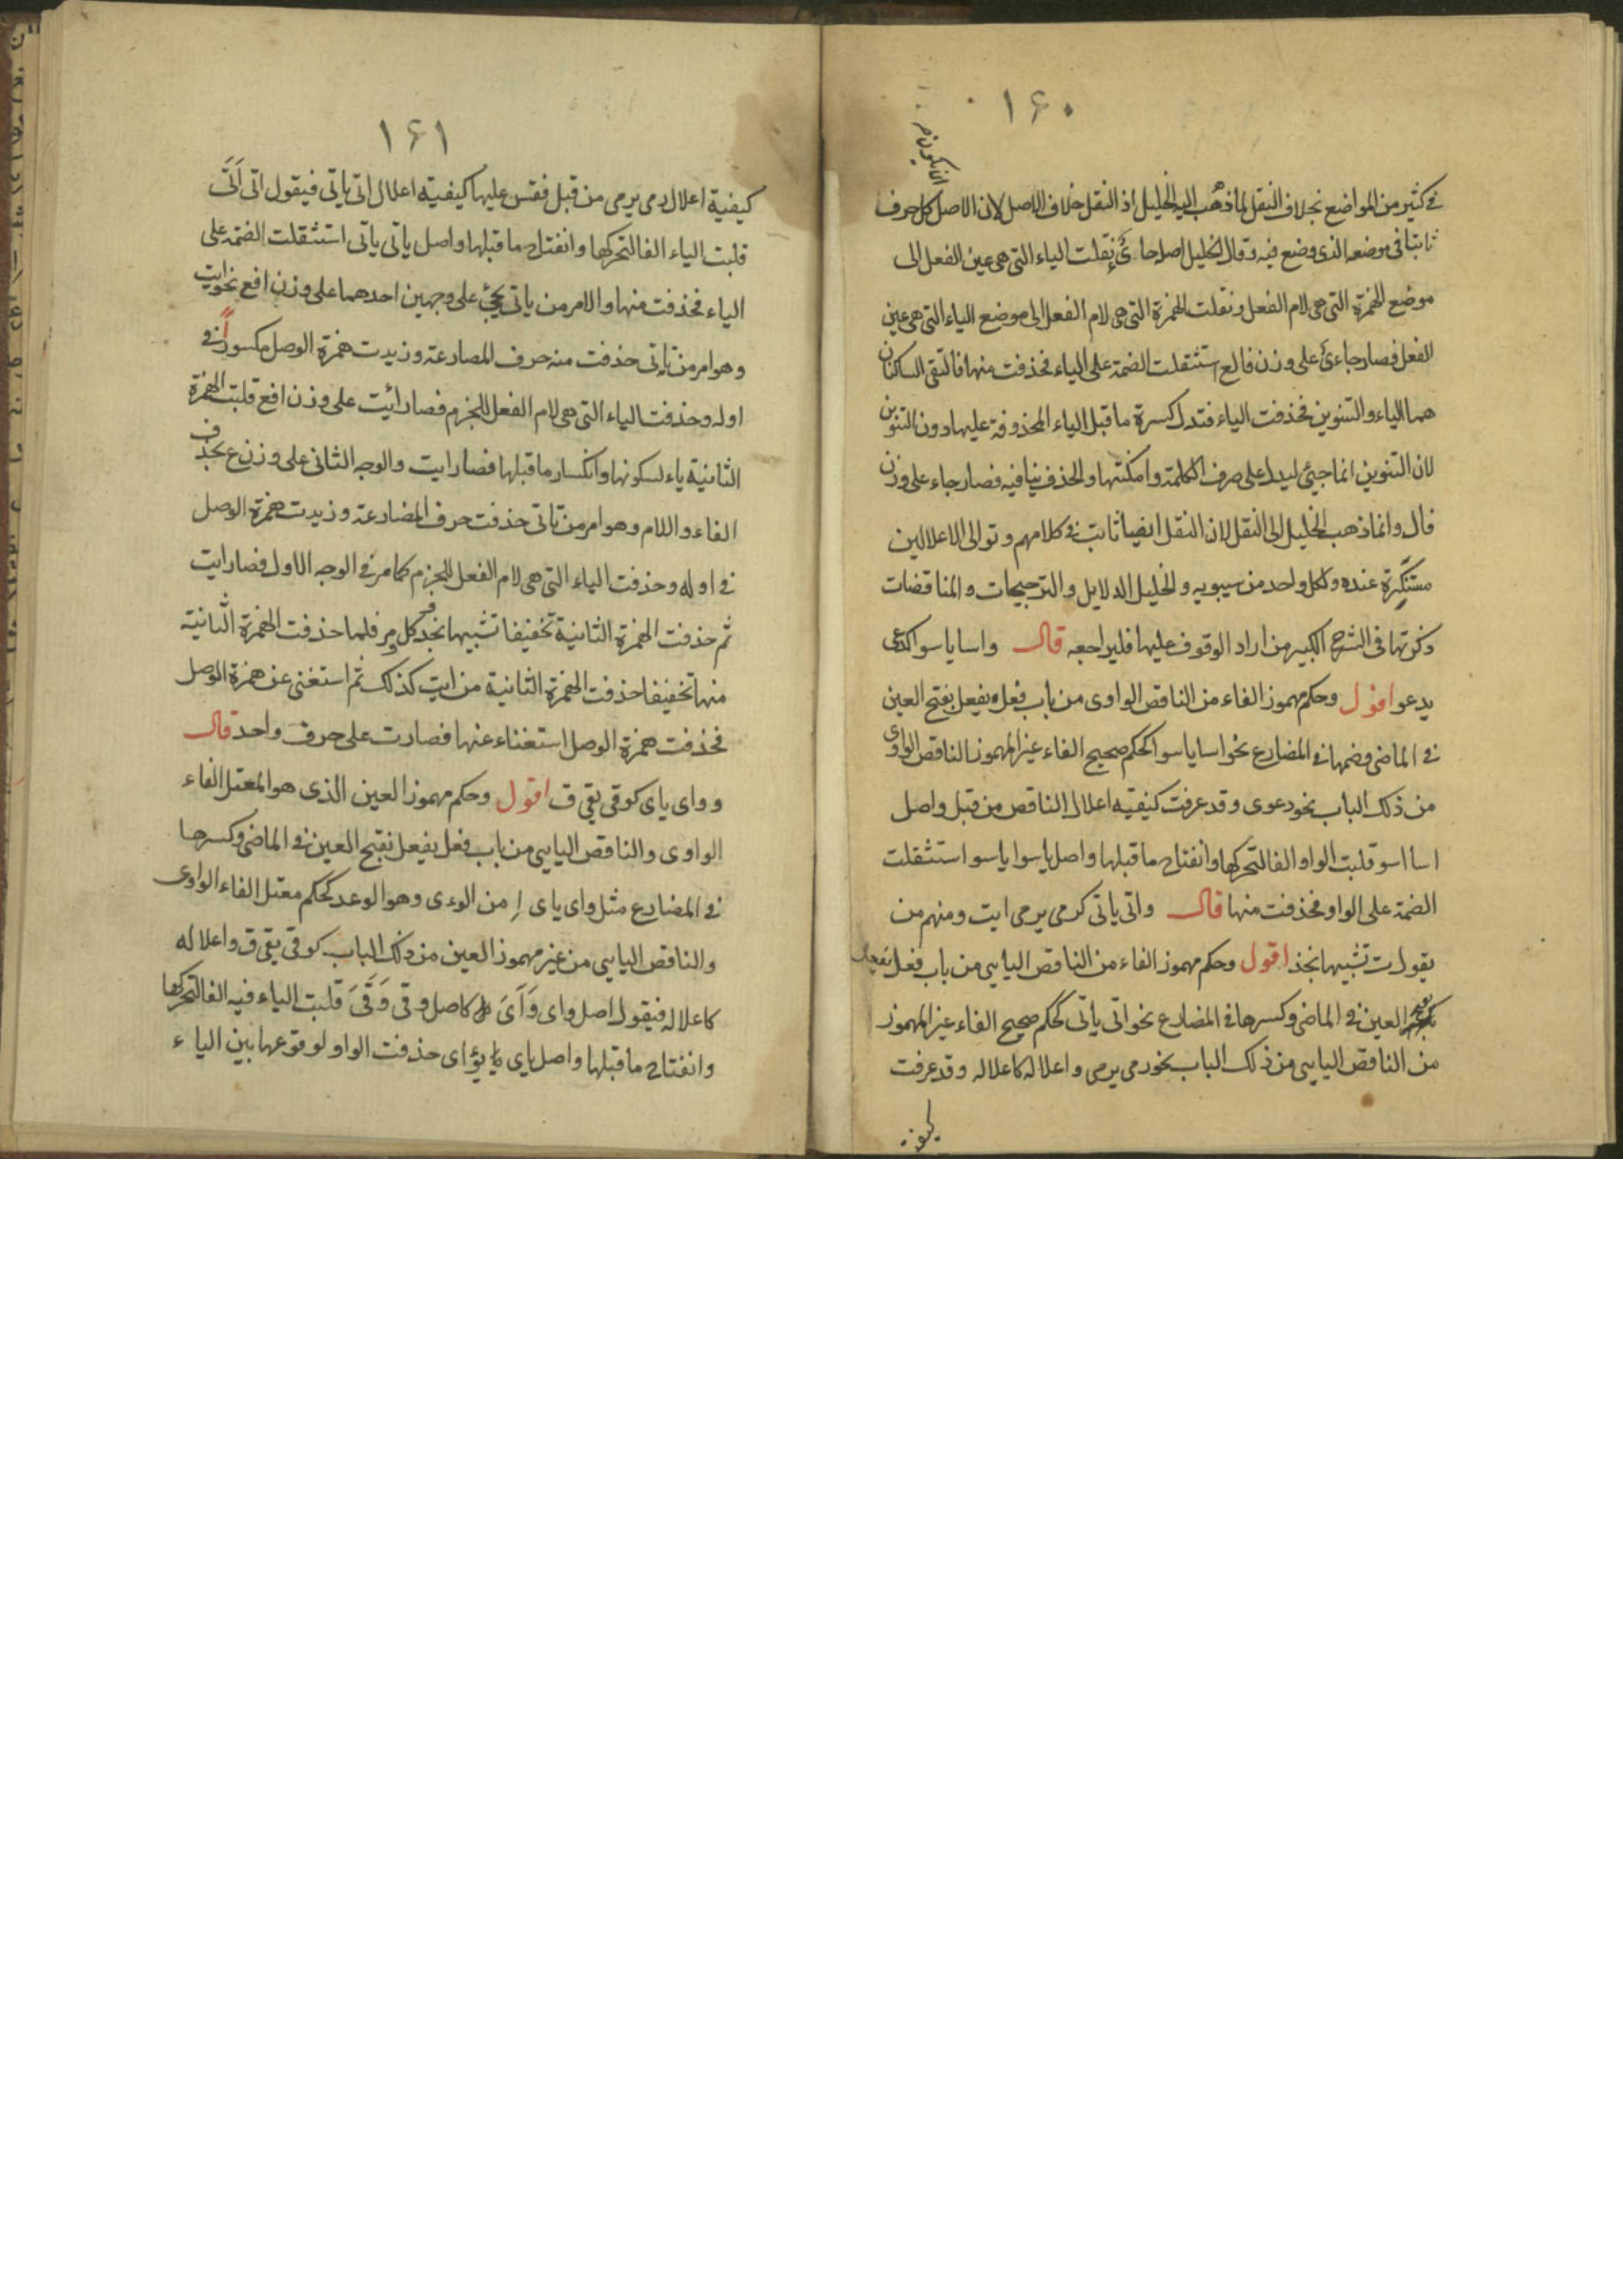 ١۶٠
ان يكون
فى كثير من المواضع بخلاف النقل لما ذهب اليه الخليل اذ النقل خلاف الاصل لان الاصل كل حرف
ثابتا فى موضعه الذى وضع فيه وقال الخليل اصله جائ نقلت الياء التى هى عين الفعل الى
موضع الهمزة التى هى لام الفعل ونقلت الهمزة التى هى لام الفعل الى موضع الياء التى هى عين
الفعل فصار جاءئ على وزن فالع استثقلت الضمة على الياء فحذفت منها فالتقى الساكنان
هما الياء والتنوين فحذفت الياء فتدل كسرة ما قبل الياء المحذوفة عليها دون التنوين
لان التنوين انما جيئ ليدل على صرف الكلمة وامكنتها والحذف ينافيه فصار جاء على وزن
فال وانما ذهب الخليل الى النقل لان النقل ايضا ثابت فى كلامهم وتوالى الاعلالين
مستنكرة عنده ولكل واحد من سيبويه والخليل الدلايل والترجيحات والمناقضات
ذكرتها فى الشرح الكبير من اراد الوقوف عليها فليراجعه قال واسا ياسو اكدعى
يدعو اقول وحكم مهموز الفاء من الناقص الواوى من باب فعل يفعل بفتح العين
فى الماضى وضمها فى المضارع نحو اسا ياسو كحكم صحيح الفاء غير المهموز الناقص الواوى
من ذلك الباب نحو دعوى وقد عرفت كيفيه اعلال الناقص من قبل واصل
اسا اسو قلبت الواو الفا لتحركها وانفتاح ما قبلها واصل ياسوا ياسو استثقلت
الضمة على الواو فحذفت منها قال واتى ياتى كرمى يرمى ايت ومنهم من
يقول ت تشبيها بخذ اقول وحكم مهموز الفاء من الناقص اليايى من باب فعل يفعل
بفتح العين فى الماضى وكسرها فى المضارع نحو اتى ياتى كحكم صحيح الفاء غير المهموز
من الناقص اليايى من ذلك الباب نحو رمى يرمى واعلاله كاعلاله وقد عرفت
كيفية
١۶١
كيفية اعلال رمى يرمى من قبل فقس عليها كيفيته اعلال اتى ياتى فيقول اتى اَتَىَ
قلبت الياء الفا لتحركها وانفتاح ما قبلها واصل ياتى ياتى استثقلت الضمة على
الياء فحذفت منها والامر من ياتى يجئ على وجهين احدهما على وزن افع نحو ايت
وهو امر من تاتى حذفت منه حرف المضارعة وزيدت همزة الوصل مكسورًا فى
اوله وحذفت الياء التى هى لام الفعل للجزم فصار ائيت على وزن افع قلبت الهمزة
الثانية ياء لسكونها وانكسار ما قبلها فصار ايت والوجه الثانى على وزن ع بحذف
الفاء واللام وهو امر من تاتى حذفت حرف المضارعة وزيدت همزة الوصل
فى اوله وحذفت الياء التى هى لام الفعل للجزم كما مر فى الوجه الاول فصار ايت
ثم حذفت الهمزة الثانية تخفيفا تشبيها بخذ وكل ومر فلما حذفت الهمزة الثانية
منها تخفيفا حذفت الهمزة الثانية من ايت كذلك ثم استغنى عن همزة الوصل
فحذفت همزة الوصل استغناء عنها فصارت على حرف واحد قال
وواى ياى كوقى يقى ق اقول وحكم مهموز العين الذى هو المعتل الفاء
الواوى والناقص اليايى من باب فعل يفعل بفتح العين فى الماضى وكسرها
فى المضارع مثل واى ياى اِ من الوءى وهو الوعد كحكم معتل الفاء الواوى
والناقص اليايى من غير مهموز العين من ذلك الباب كوقى يقى ق واعلاله
كاعلاله فيقول اصل واى وَاَىَ كاصل وقى وَقَىَ قلبت الياء فيه الفا لتحركها
وانفتاح ما قبلها واصل ياى يؤاى حذفت الواو لوقوعها بين الياء